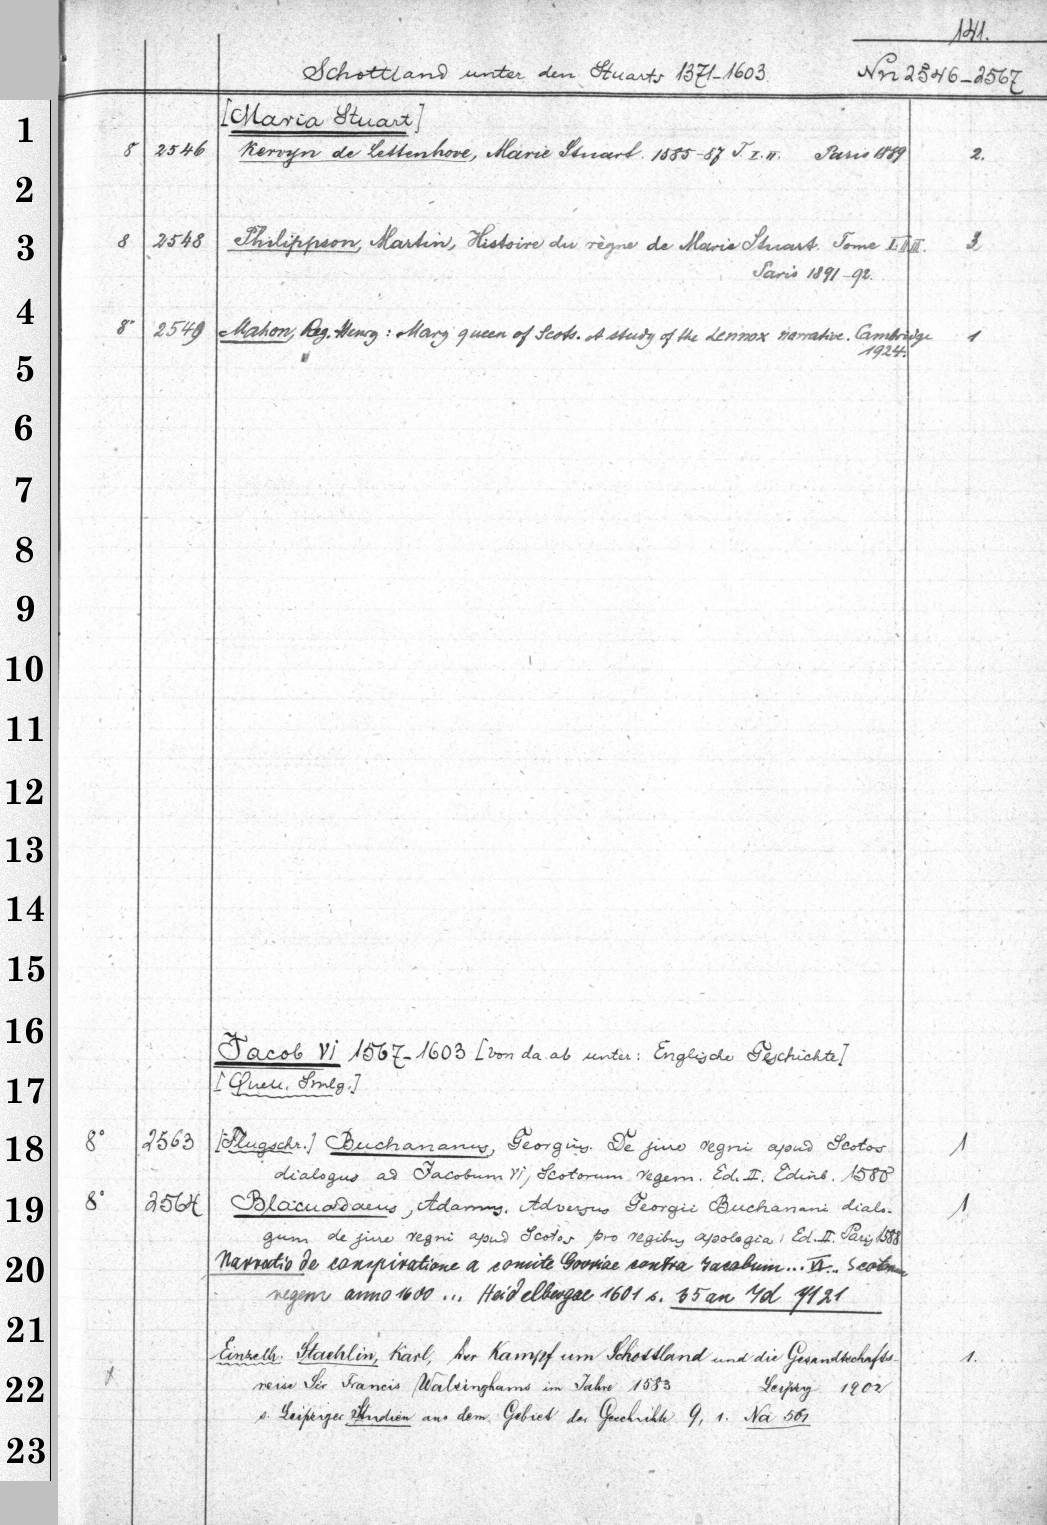 141.
Schottland unter den Stuarts 1371-1603. Nn 2546-2567
[Maria Stuart]
8 2546 Kervyn de Lettenhove, Marie Stuart. 1585-87 T. I. II. Paris 1889 2.
8 2548 Philippson, Martin, Histoire du règne de Marie Stuart. Tome I. II III. 3
Paris 1891-92.
8° 2549 Mahon, Reg. Henry: Mary queen of Scots. A study of the Lennox narrative. Cambridge 1
1924.
Jacob VI 1567-1603 [Von da ab unter: Englische Geschichte]
[Quell. Smlg.]
8° 2563 [Flugschr.] Buchananus, Georgius. De jure regni apud Scotos 1
dialogus ad Jacobum VI, Scotorum regem. Ed. II. Edinb. 1580
8° 2564 Blacuodaeus, Adamus. Adversus Georgii Buchanani dialo- 1
gum de jure regni apud Scotos pro regibus apologia, Ed. II. Paris 1588
Narratio de conspiratione a comite Govriae contra Jacobum... VI.. Scotorum
regem anno 1600 ... Heidelbergae 1601 s. 35 an Jd 7121
Einzelh. Staehlin, Karl, Der Kampf um Schottland und die Gesandtschafts- 1.
reise Sir Francis Walsinghams im Jahre 1583 Leipzig 1902
s. Leipziger Studien aus dem Gebiet der Geschichte 9, 1. Na 561
1
2
3
4
5
6
7
8
9
10
11
12
13
14
15
16
17
18
19
20
21
22
23